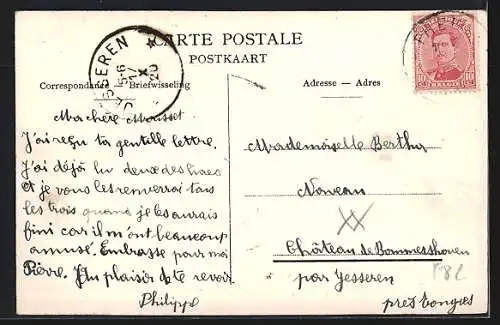 CARTE POSTALE
POSTKAART
Correspondance Briefwisseling
Adresse — Adres
JESSEREN
5-6
17
X
20
Ma chère Mousset
J'ai reçu ta gentille lettre.
J'ai déjà lu deux des livres
et je vous les renverrai tous
les trois quand je les aurais
fini car il m'ont beaucoup
amusé. Embrasse pour moi
Pierre. Au plaisir de te revoir
Philippe
Mademoiselle Berthe
Naveau
Château de Bommershoven
par Jesseren
près Tongres